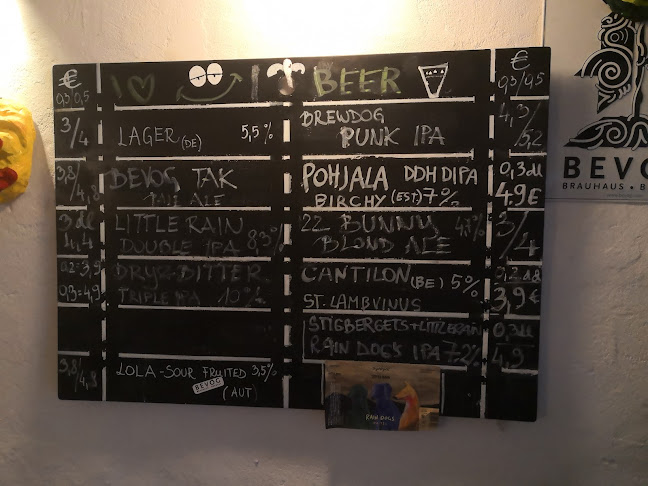 €
0,3/0,5
I I BEER
€
0,3/0,5
3/4
LAGER (DE) 5,5%
BREWDOG
PUNK IPA
4,3/5,2
3,8/4,8
BEVOG TAK
PALE ALE
POHJALA DDH DIPA
BIRCHY (EST) 7%
0,3dl
4,9€
3 dl
LITTLE RAIN
DOUBLE IPA 8,3%
22 BUNNY
BLOND ALE
3/4
0,2=3,9
0,3=4,9
DRY & BITTER
TRIPLE IPA 10%
CANTILON (BE) 5%
ST. LAMBVINUS
3,9€
STIGBERGETS + LITTLE RAIN
RAIN DOGS IPA 7.2%
0,3dl
4,9
3,8/4,8
LOLA - SOUR FRUITED 3,5%
BEVOG
(AUT)
RAIN DOGS
BEVO
BRAUHAUS • B